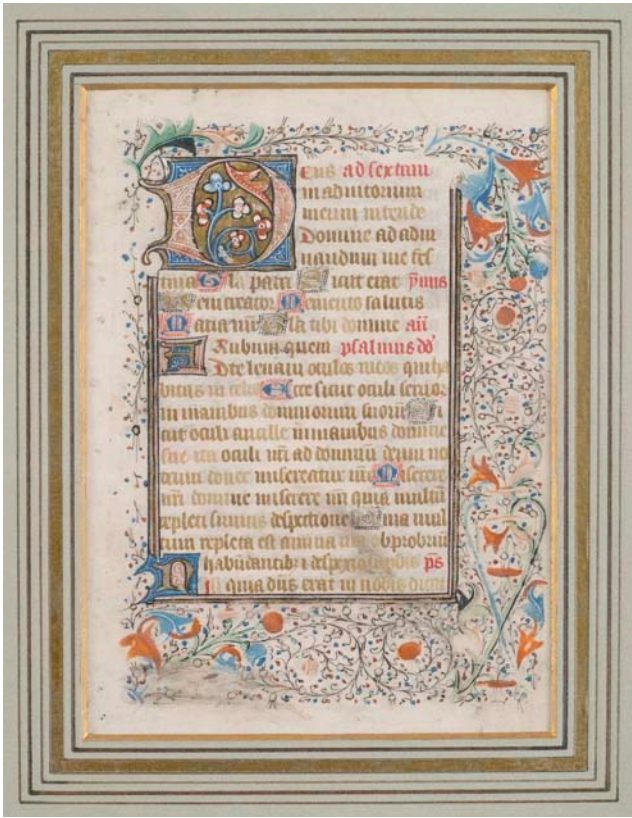 Deus ad sextam
in adiutorium
meum intende
Domine ad adiu
uandum me fes
tina Gla patri Sicut erat ymus
Veni creator Memento salutis
Maria mr Gla tibi domine an̄
Rubum quem psalmus dd'
Ad te leuaui oculos meos qui ha
bitas in celis Ecce sicut oculi seruor
in manibus dominorum suorum Si
cut oculi ancille in manibus domine
sue ita oculi nr̄i ad dominū deum no
strum donec misereatur nr̄i Miserere
nr̄i domine miserere nr̄i quia multū
repleti sumus despectione Quia mul
tum repleta est anima obprobriū
habūdantib; despectio ps̄
N quia dn̄s erat in nobis dicat